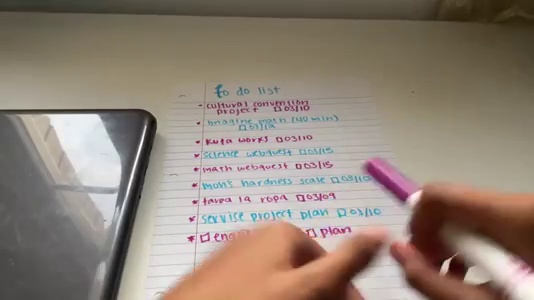 to do list
- cultural convention
project □ 03/10
• Imagine math (40 min)
• kuta works □ 03/10
• science webquest □ 03/15
• math webquest □ 03/15
• moh's hardness scale □ 03/10
• tarea la ropa □ 03/09
• servise project plan □ 03/10
* □ □ plan